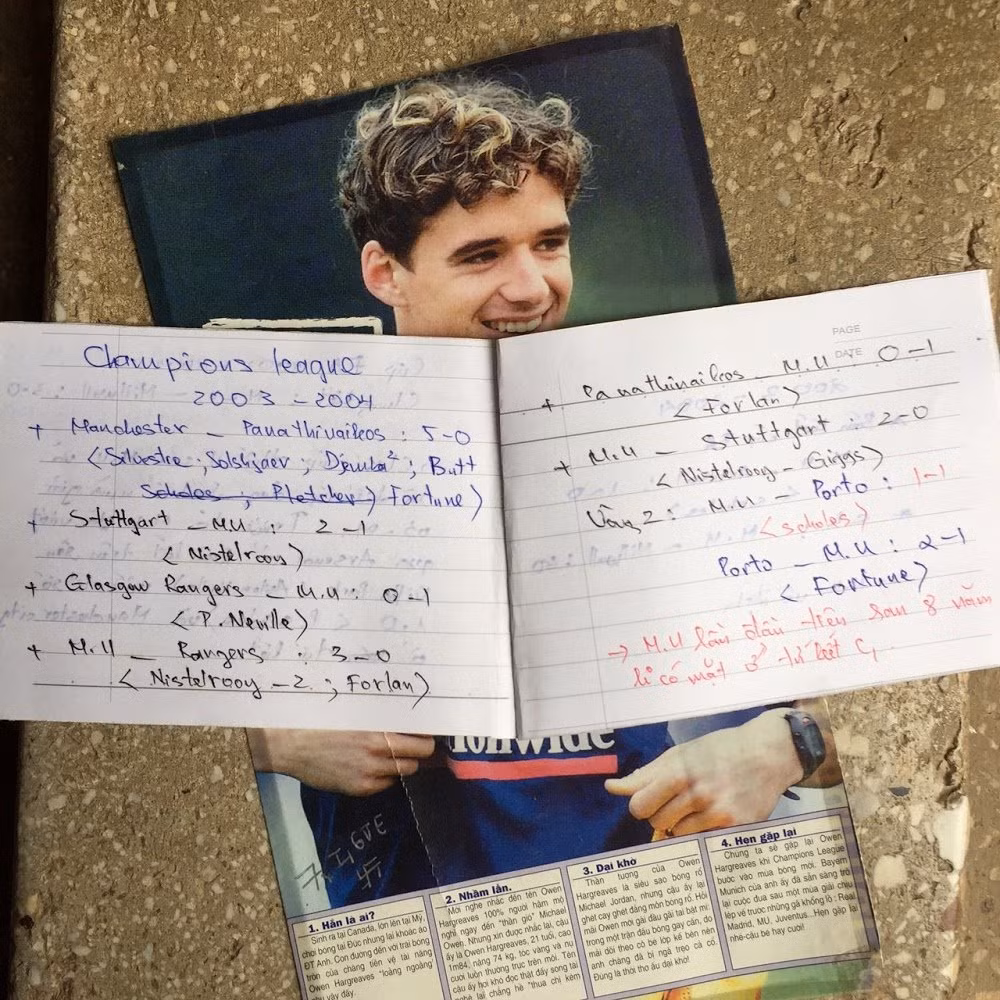 Champions league
2003 - 2004
+ Manchester - Panathinaikos : 5-0
(Silvestre ; Solskjaer ; Djemba² ; Butt
Scholes ; Fletcher) Fortune)
+ Stuttgart - M.U : 2-1
(Nistelrooy)
+ Glasgow Rangers - M.U : 0-1
(P. Neville)
+ M.U - Rangers : 3-0
(Nistelrooy - 2 ; Forlan)
PAGE
DATE
+ Panathinaikos - M.U 0-1
(Forlan)
+ M.U - Stuttgart : 2-0
(Nistelrooy - Giggs)
Vòng 2 : M.U - Porto : 1-1
(scholes)
Porto - M.U : 2-1
(Fortune)
→ M.U lần đầu tiên sau 8 năm
có mặt ở tứ kết
nationwide
1. Hắn là ai?
Sinh ra tại Canada, lớn lên tại Mỹ,
chơi bóng tại Đức nhưng lại khoác áo
ĐT Anh. Con đường đến với trái bóng
tròn của chàng tiền vệ tài năng
Owen Hargreaves "loằng ngoằng
như vậy đấy.
2. Nhầm lẫn.
Mới nghe nhắc đến tên Owen
Hargreaves 100% người hâm mộ
nghĩ ngay đến "thần gió" Michael
Owen. Nhưng xin được nhắc lại, cậu
ấy là Owen Hargreaves, 21 tuổi, cao
1m84, nặng 74 kg, tóc vàng và nụ
cười luôn thường trực trên môi. Tên
cậu ấy hơi khó đọc thật đấy song tại
3. Dại khờ
Thần tượng của Owen
Hargreaves là siêu sao bóng rổ
Michael Jordan, nhưng cậu ấy lại
ghét cay ghét đắng môn bóng rổ. Hỏi
mãi Owen mới gãi đầu gãi tai bật mí:
trong một trận đấu bóng gay cấn, do
mải dõi theo cô bé lớp kế bên nên
anh chàng đã bị ngã trẹo cả cổ.
Đúng là thời thơ ấu dại khờ!
4. Hẹn gặp lại
Chúng ta sẽ gặp lại Owen
Hargreaves khi Champions League
bước vào mùa bóng mới. Bayern
Munich của anh ấy đã sẵn sàng trở
lại cuộc đua sau một mùa giải chịu
lép vế trước những gã khổng lồ: Real
Madrid, MU, Juventus...Hẹn gặp lại
nhé-cậu bé hay cười!